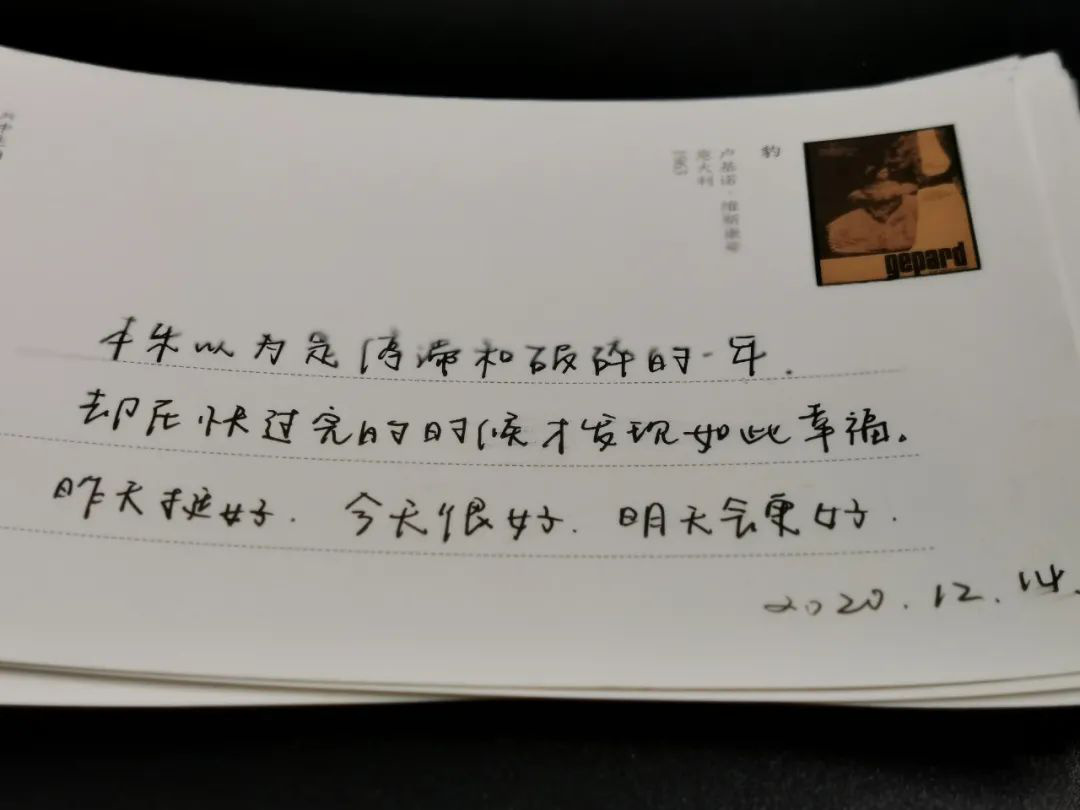 豹
卢基诺·维斯康蒂
意大利
1963
gepard
本来以为是停滞和破碎的一年.
却在快过完的时候才发现如此幸福。
昨天挺好. 今天很好. 明天会更好.
2020.12.14.